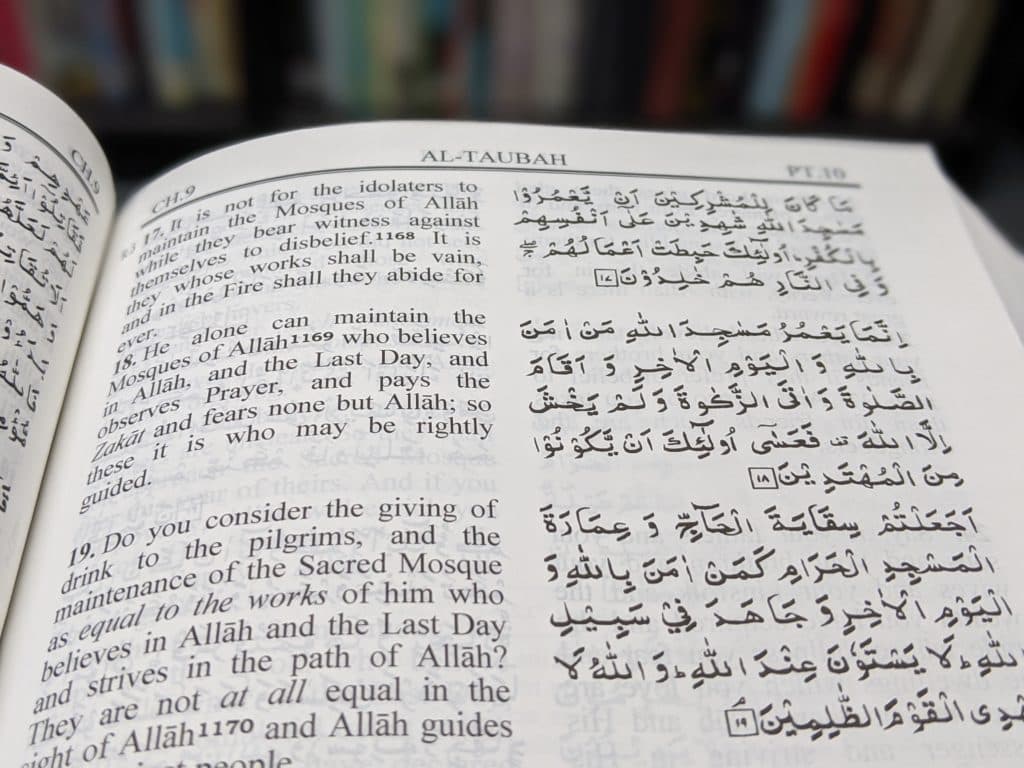 CH.9
AL-TAUBAH
PT.10
CH.9
R.3 17. It is not for the idolaters to
maintain the Mosques of Allāh
while they bear witness against
themselves to disbelief.1168 It is
they whose works shall be vain,
and in the Fire shall they abide for
ever.
18. He alone can maintain the
Mosques of Allāh1169 who believes
in Allāh, and the Last Day, and
observes Prayer, and pays the
Zakāt and fears none but Allāh; so
these it is who may be rightly
guided.
19. Do you consider the giving of
drink to the pilgrims, and the
maintenance of the Sacred Mosque
as equal to the works of him who
believes in Allāh and the Last Day
and strives in the path of Allāh?
They are not at all equal in the
sight of Allāh1170 and Allāh guides
people
مَا كَانَ لِلْمُشْرِكِيْنَ اَنْ يَّعْمُرُوْا
مَسٰجِدَ اللّٰهِ شٰهِدِيْنَ عَلٰۤى اَنْفُسِهِمْ
بِالْكُفْرِ ؕ اُولٰٓئِكَ حَبِطَتْ اَعْمَالُهُمْ ۚۖ
وَ فِي النَّارِ هُمْ خٰلِدُوْنَ
اِنَّمَا يَعْمُرُ مَسٰجِدَ اللّٰهِ مَنْ اٰمَنَ
بِاللّٰهِ وَ الْيَوْمِ الْاٰخِرِ وَ اَقَامَ
الصَّلٰوةَ وَ اٰتَى الزَّكٰوةَ وَ لَمْ يَخْشَ
اِلَّا اللّٰهَ قف فَعَسٰۤى اُولٰٓئِكَ اَنْ يَّكُوْنُوْا
مِنَ الْمُهْتَدِيْنَ ۱۸
اَجَعَلْتُمْ سِقَايَةَ الْحَآجِّ وَ عِمَارَةَ
الْمَسْجِدِ الْحَرَامِ كَمَنْ اٰمَنَ بِاللّٰهِ وَ
الْيَوْمِ الْاٰخِرِ وَ جَاهَدَ فِيْ سَبِيْلِ
اللّٰهِ ؕ لَا يَسْتَوٗنَ عِنْدَ اللّٰهِ ؕ وَ اللّٰهُ لَا
الْقَوْمَ الظّٰلِمِيْنَ ۱۹